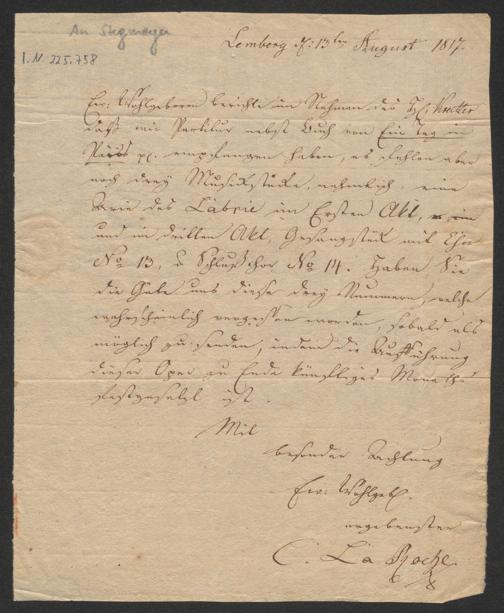 An Stegmayer
I.N. 225.758
Lemberg d: 13ten August 1817.
Euer Wohlgeboren berichte im Nahmen des H:
daß wir Partitur nebst Buch von Ein Tag in
Paris pp. empfangen haben, es fehlen aber
noch drey Musikstücke, nehmlich: eine
Arie des Labrie im Ersten Akt,
und im dritten Akt, Gesangstük mit Chor
No 13, u Schlußchor No 14. Haben Sie
die Güte uns diese drey Nummern, welche
wahrscheinlich vergessen worden, sobald als
möglich zu senden, indem die Aufführung
dieser Oper zu Ende künftiges Monaths
festgesetzt ist.
Mit
besonder Achtung
Euer Wohlgeb.
ergebenster
C. La Roche.